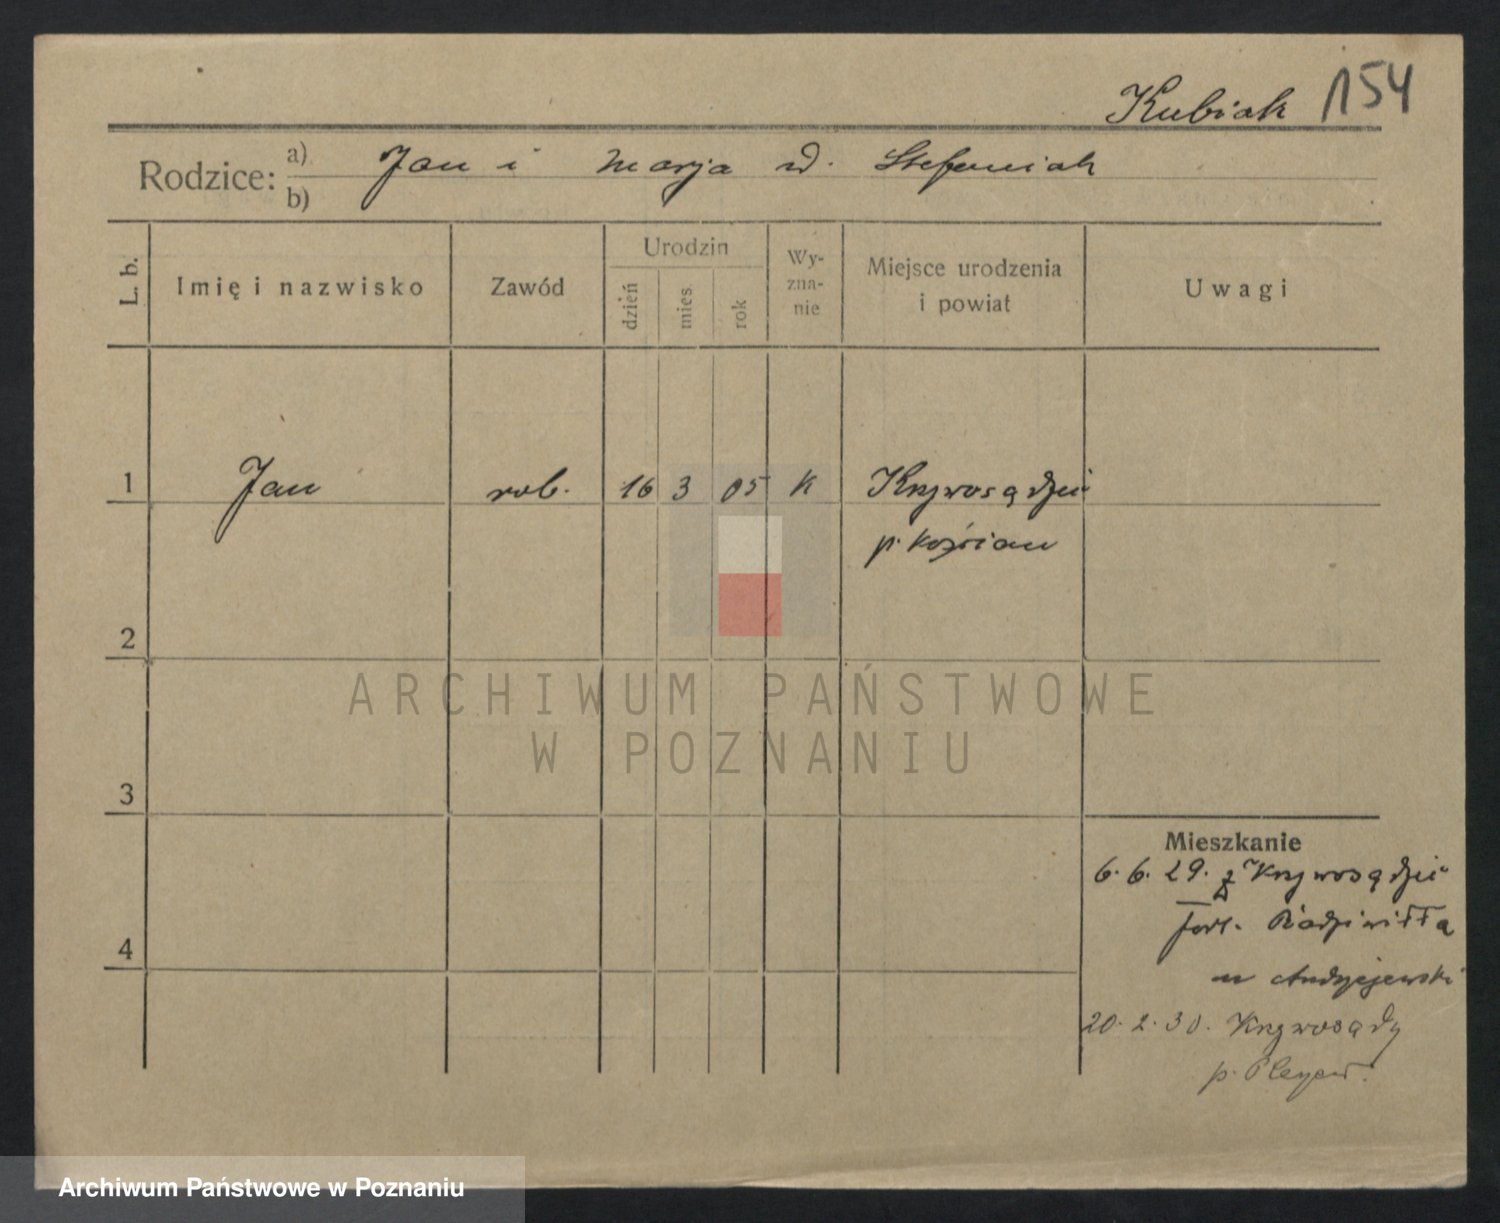 Kubiak 154
Rodzice: a) Jan i Marja d. Stefaniak
b)
L. b. Imię i nazwisko Zawód Urodzin dzień mies. rok Wy-zna-nie Miejsce urodzenia i powiat Uwagi
1 Jan rob. 16 3 05 K Krzywosądzie
p. Kościan
2
3
4
Mieszkanie
6. 6. 29. z Krzywosądzie
fort. Radziwiłła
u Andrzejewski
20. 2. 30. Krzywosądy
p.
ARCHIWUM PAŃSTWOWE
W POZNANIU
Archiwum Państwowe w Poznaniu